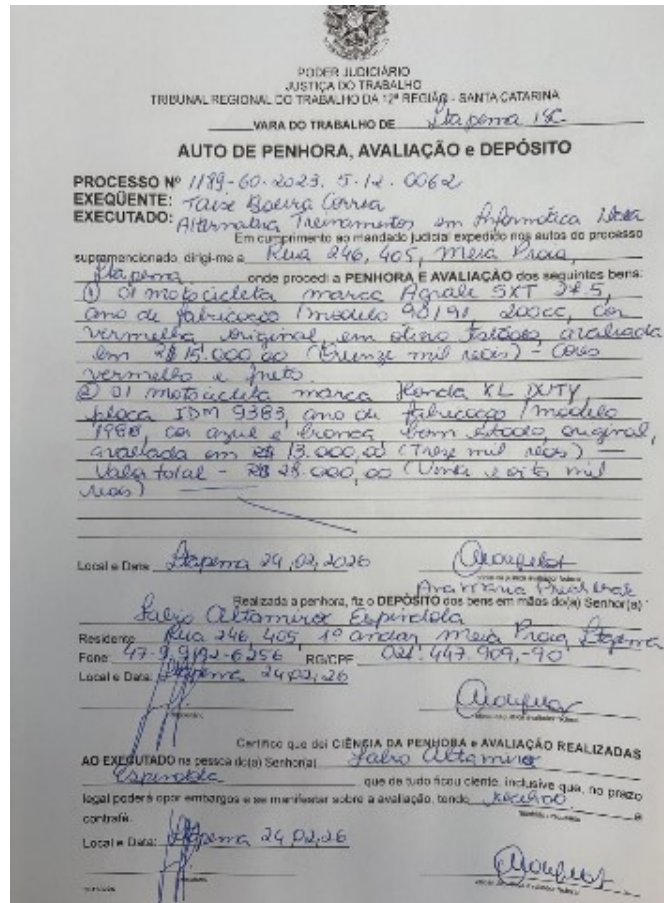 PODER JUDICIÁRIO
JUSTIÇA DO TRABALHO
TRIBUNAL REGIONAL DO TRABALHO DA 12ª REGIÃO - SANTA CATARINA
VARA DO TRABALHO DE Itapema / SC
AUTO DE PENHORA, AVALIAÇÃO e DEPÓSITO
PROCESSO Nº 1189-60.2023.5.12.0062
EXEQÜENTE: Taise Boeira Correa
EXECUTADO: Alternativa Treinamentos em Informática Ltda
Em cumprimento ao mandado judicial expedido nos autos do processo
supramencionado, dirigi-me a Rua 246, 405, Meia Praia,
Itapema onde procedi a PENHORA E AVALIAÇÃO dos seguintes bens:
① 01 motocicleta marca Agrale SXT 27.5,
ano de fabricação / modelo 90/91, 200cc, cor
vermelha, original, em ótimo estado, avaliada
em R$ 15.000,00 (Quinze mil reais) - Cores
vermelho e preto.
② 01 motocicleta marca Honda XL DUTY,
placa IDM 9383, ano de fabricação / modelo
1988, cor azul e branca, bom estado, original,
avaliada em R$ 13.000,00 (Treze mil reais) —
Valor total - R$ 28.000,00 (Vinte e oito mil
reais)
Local e Data: Itapema 24,02,2026
Ana Maria
Realizada a penhora, fiz o DEPÓSITO dos bens em mãos do(a) Senhor(a)
Altamiro Espindola
Residente Rua 246, 405, 1º andar, Meia Praia, Itapema
Fone: 47-9.9192-6256 RG/CPF 021.447.909,-90
Local e Data: Itapema 24,02,26
Certifico que dei CIÊNCIA DA PENHORA e AVALIAÇÃO REALIZADAS
AO EXECUTADO na pessoa do(a) Senhor(a) Altamiro
Espindola que de tudo ficou ciente, inclusive que, no prazo
legal poderá opor embargos e se manifestar sobre a avaliação, tendo recebido a
contrafé.
Local e Data: Itapema 24,02,26